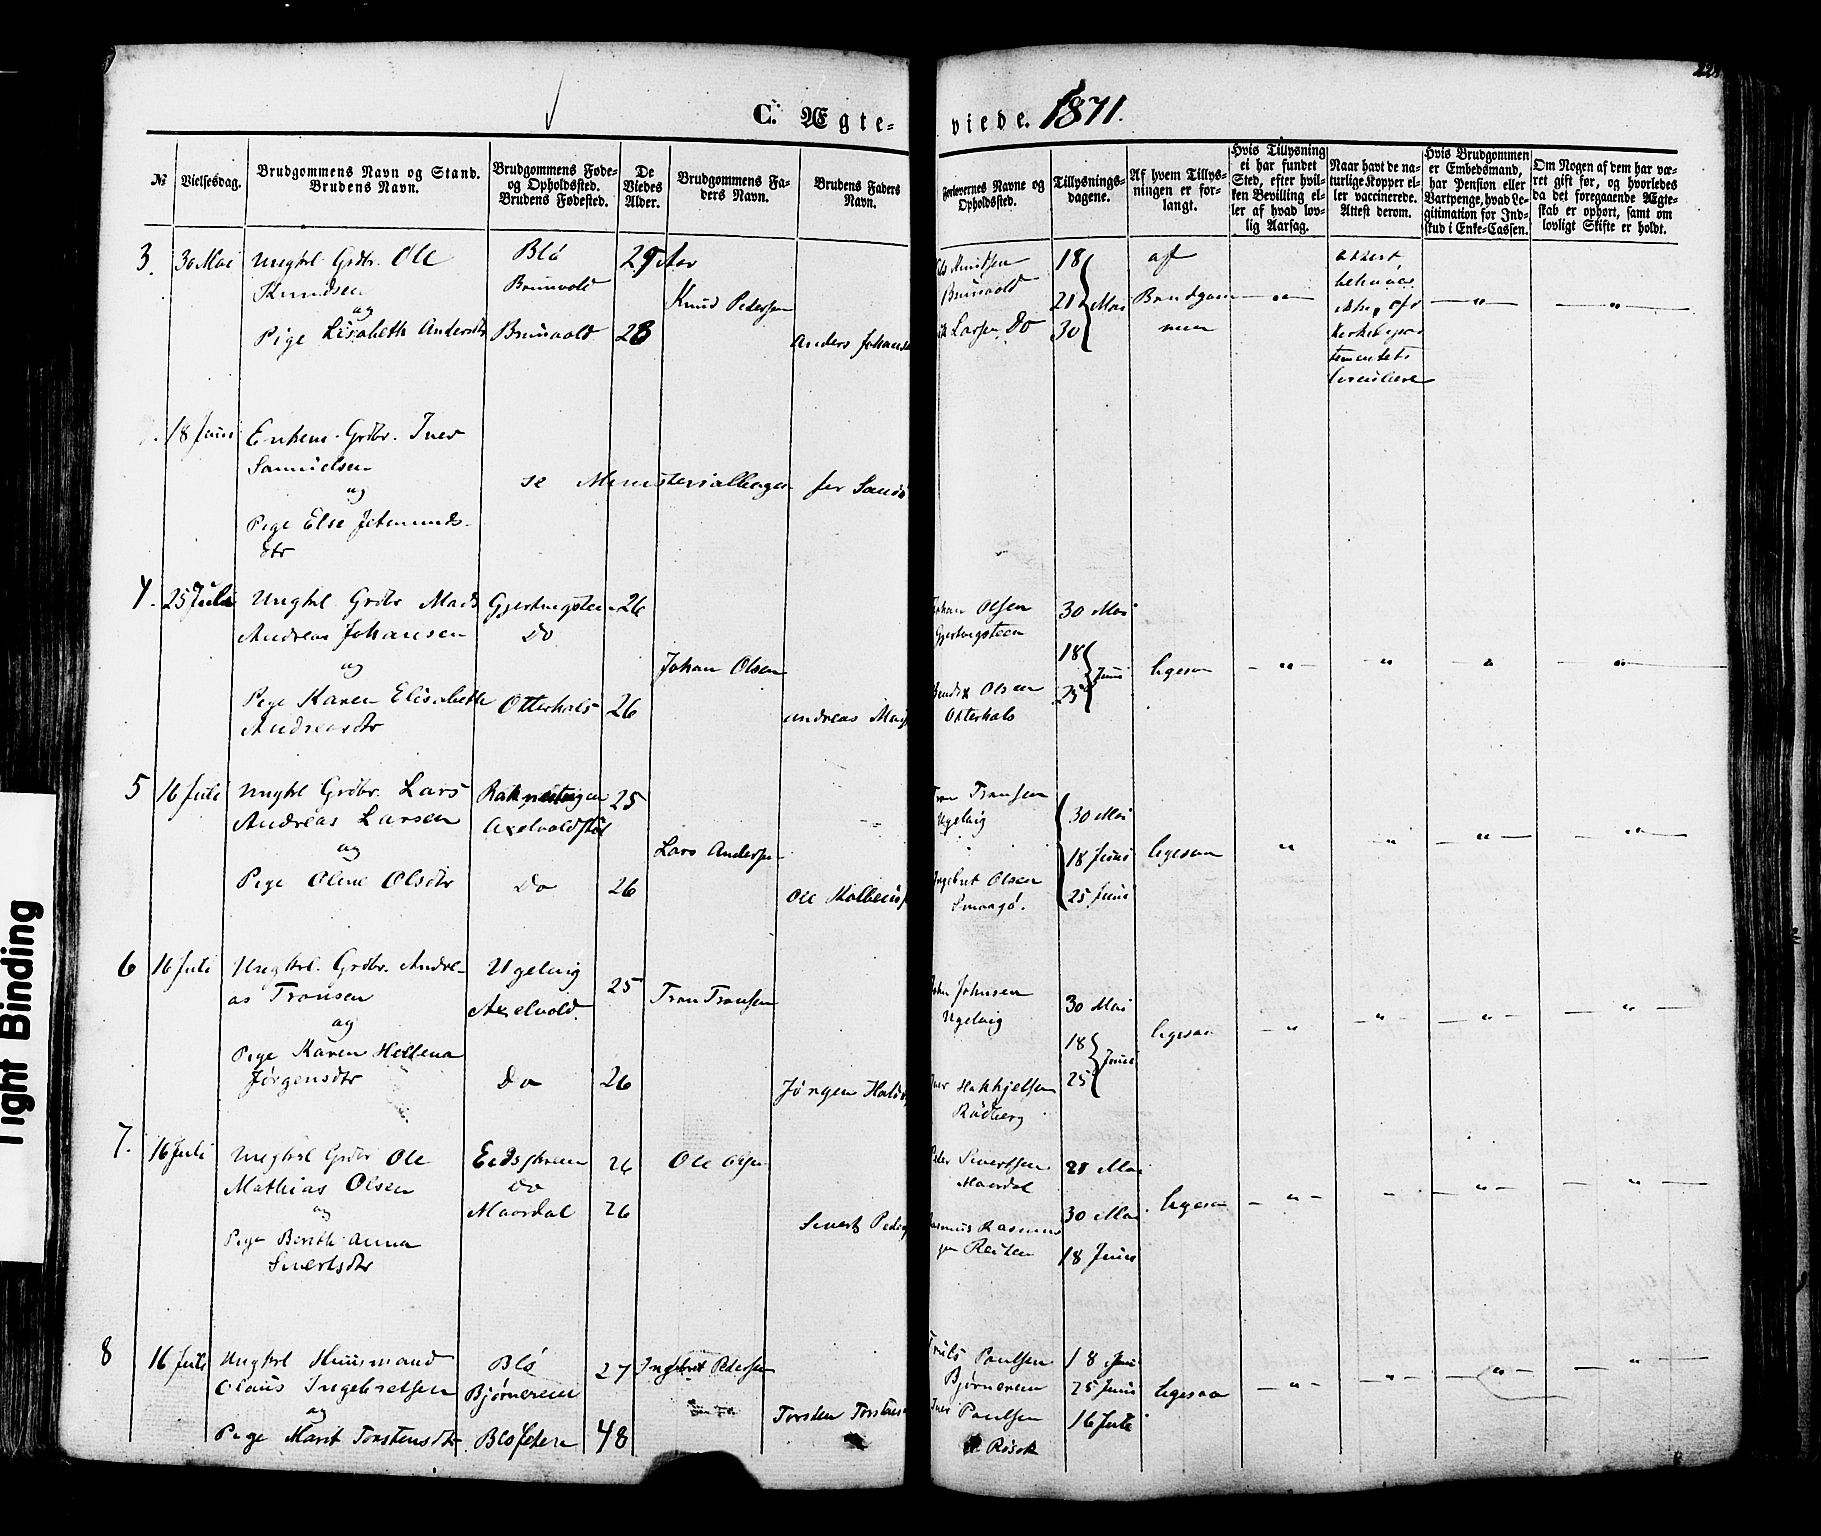 C. Ægte-
viede. 1871.
№
Vielsesdag.
Brudgommens Navn og Stand.
Brudens Navn.
Brudgommens Føde-
og Opholdssted.
Brudens Fødested.
De
Viedes
Alder.
Brudgommens Fa-
ders Navn.
Brudens Faders
Navn.
Forlovernes Navne og
Opholdssted.
Tillysnings-
dagene.
Af hvem Tillys-
ningen er for-
langt.
Hvis Tillysning
ei har fundet
Sted, efter hvil-
ken Bevilling el-
ler af hvad lov-
lig Aarsag.
Naar havt de na-
turlige Kopper el-
ler vaccinerede.
Attest derom.
Hvis Brudgommen
er Embedsmand,
har Pension eller
Vartpenge, hvad Le-
gitimation for Ind-
skud i Enke-Cassen.
Om Nogen af dem har væ-
ret gift før, og hvorledes
da det foregaaende Ægte-
skab er ophørt, samt om
lovligt Skifte er holdt.
3. 30 Mai Ungkl Grdbr. Ole
Knudsen
og
Pige Lisabeth Andersdtr
Blø
Brunvold
Brunvold
29 Aar
28
Knud Pedersen
Anders Johans
Knudsen
Brunvold
Larsen Do
18
21 Mai
30
af
Brudgom
men
attest
behøves
ikke, efr
Kirkedepar
tementets
Circulære
18 Juni Enkem. Grdbr. Iver
Samuelsen
og
Pige Else Jetmunds-
dtr
se Ministerialbogen for Sandø
4. 25 Juli Ungkl Grdbr Mads
Andreas Johansen
og
Pige Karen Elisabeth
Andreasdtr
Gjertvigsteen
Do
Otterhals
26
26
Johan Olsen
Andreas
Johan Olsen
Gjertvigsteen
Olsen
Otterhals
30 Mai
18
25 Juni
ligesaa
5 16 Juli Ungkl Grdbr. Lars
Andreas Larsen
og
Pige Oline Olsdtr
Axelvoldstøl
Do
25
26
Lars Andersen
Ole
Tron Tronsen
Ugelvig
Ingebret Olsen
Smaagø.
30 Mai
18 Juni
25 Juni
ligesaa
6 16 Juli Ungkl. Grdbr. Andre-
as Tronsen
og
Pige Karen Hellena
Jørgensdtr
Ugelvig
Axelvold.
Do
25
26
Tron Tronsen
Jørgen
John Johnsen
Ugelvig
Iver
Rødberg
30 Mai
18
25 Juni
ligesaa
7. 16 Juli Ungkl Grdbr Ole
Mathias Olsen
og
Pige Berith Anna
Sivertsdtr
Eidskrem
Do
Maordal
26
26
Ole Olsen
Sivert Peders
Peder Sivertsen
Maordal
Rasmus Rasmus
sen Reiten
28 Mai
30 Mai
18 Juni
ligesaa
8 16 Juli Ungkl Huusmand
Olaus Ingebretsen
og
Pige Marit Torstensdtr
Blø
Bjørnerem
27
48
Ingebret Pedersen
Torsten Torstens
Truls Paulsen
Bjørnerem
Iver Paulsen
Røsok
18 Juni
25 Juni
16 Juli
ligesaa
Tight Binding